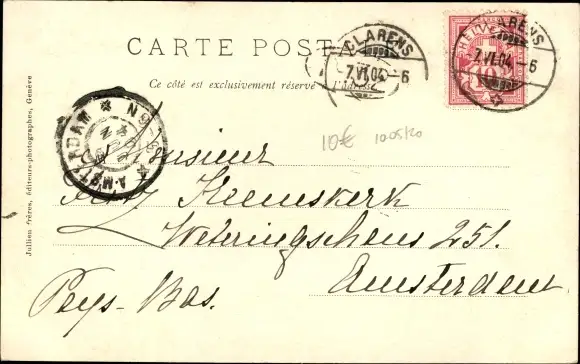 CARTE POSTALE
Ce côté est exclusivement réservé à l'adresse
CLARENS
7.VI.04.-6
CLARENS
7.VI.04.-6
HELVETIA
10
AMSTERDAM
10€ 1005/20
Monsieur
Heemskerk
Weteringschans 251.
Amsterdam
Pays-Bas.
Jullien frères, éditeurs-photographes, Genève